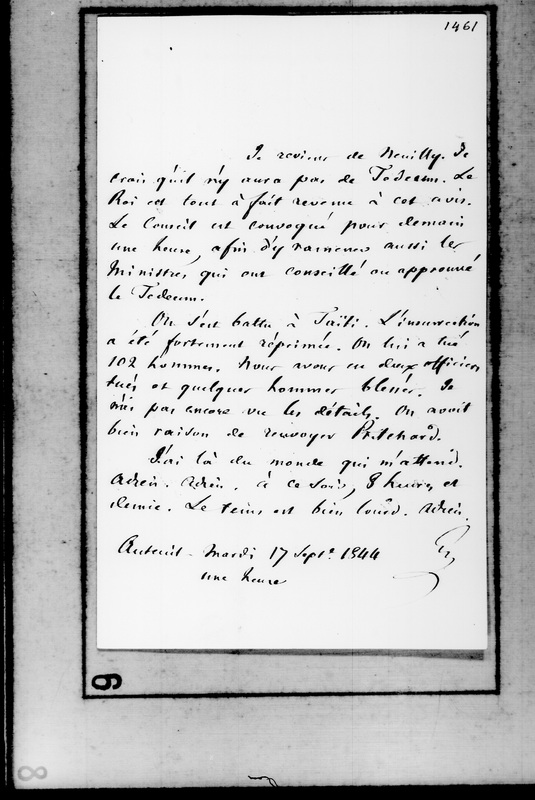 1461
Je reviens de Neuilly. Je
crois qu'il n'y aura pas de Tedeum. Le
Roi est tout à fait revenu à cet avis.
Le Conseil est convoqué pour demain
une heure, afin d'y ramener aussi les
Ministres qui ont conseillé ou approuvé
le Tedeum.
On s'est battu à Taïti. L'insurrection
a été fortement réprimée. On lui a tué
102 hommes. Nous avons eu deux officiers
tués et quelques hommes blessés. Je
n'ai pas encore vu les détails. On avait
bien raison de renvoyer Pritchard.
J'ai là du monde qui m'attend.
Adieu. Adieu. à ce soir, 8 heures et
demie. Le tems est bien lourd. Adieu.
Auteuil - Mardi 17 Sept. 1844
une heure
9
8